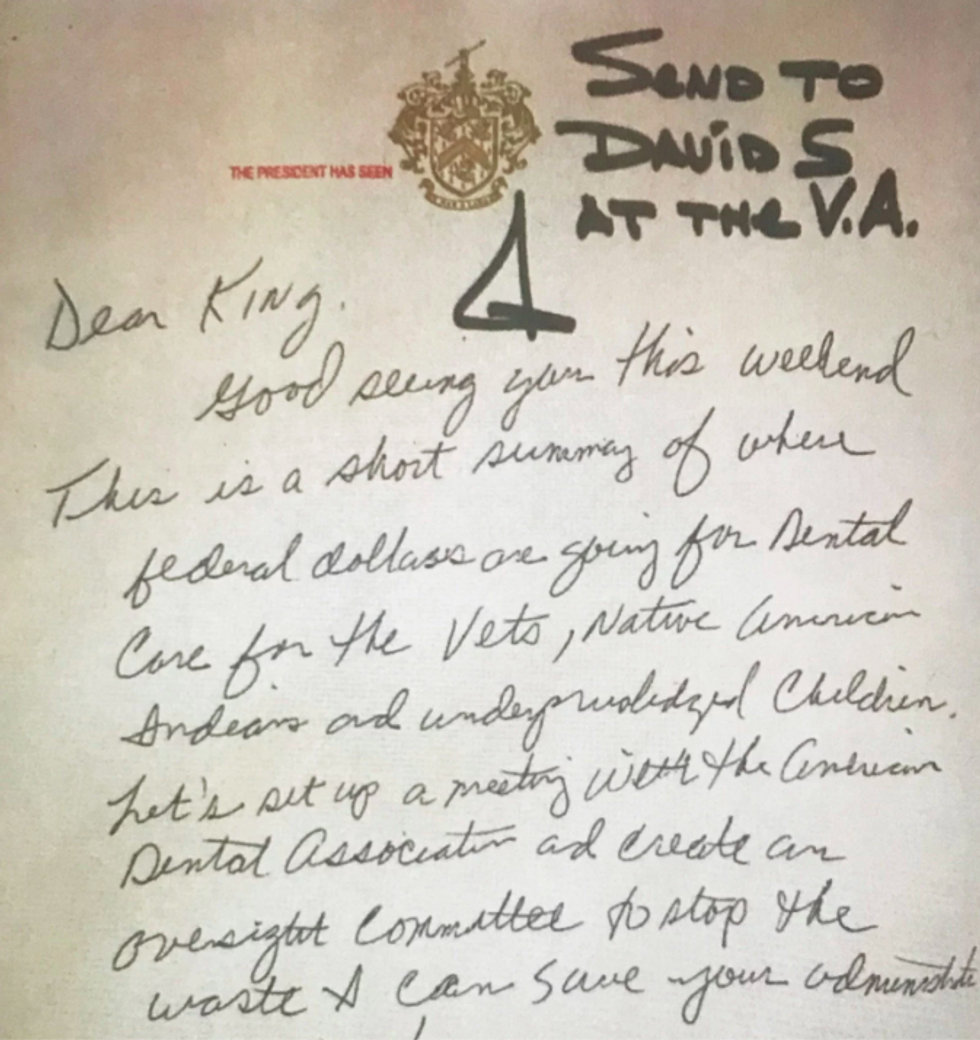 SEND TO
DAVID S
AT THE V.A.
THE PRESIDENT HAS SEEN
Dear King.
Good seeing you this weekend
This is a short summary of where
federal dollars are going for Dental
Care for the Vets, Native American
Indians and underpruilidzed Children.
Let's set up a meeting with the American
Dental Association and create an
oversight Committee to stop the
waste & can save your